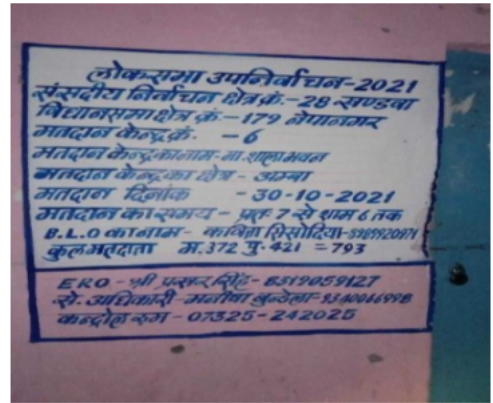 लोकसभा उपनिर्वाचन-2021
संसदीय निर्वाचन क्षेत्र क्रं.-28 खण्डवा
विधानसभा क्षेत्र क्रं-179 नेपानगर
मतदान केन्द्र क्रं. - 6
मतदान केन्द्र का नाम-मा.शाला भवन
मतदान केन्द्र का क्षेत्र - अम्बा
मतदान दिनांक - 30-10-2021
मतदान का समय - प्रातः 7 से शाम 6 तक
B.L.O का नाम- कविता सिसोदिया-
कुल मतदाता म.372 पु.421 = 793
ERO - श्री प्रसर सिंह- 8319059127
से. अधिकारी - मनीषा बुन्देला-
कन्ट्रोल रुम - 07325-242025